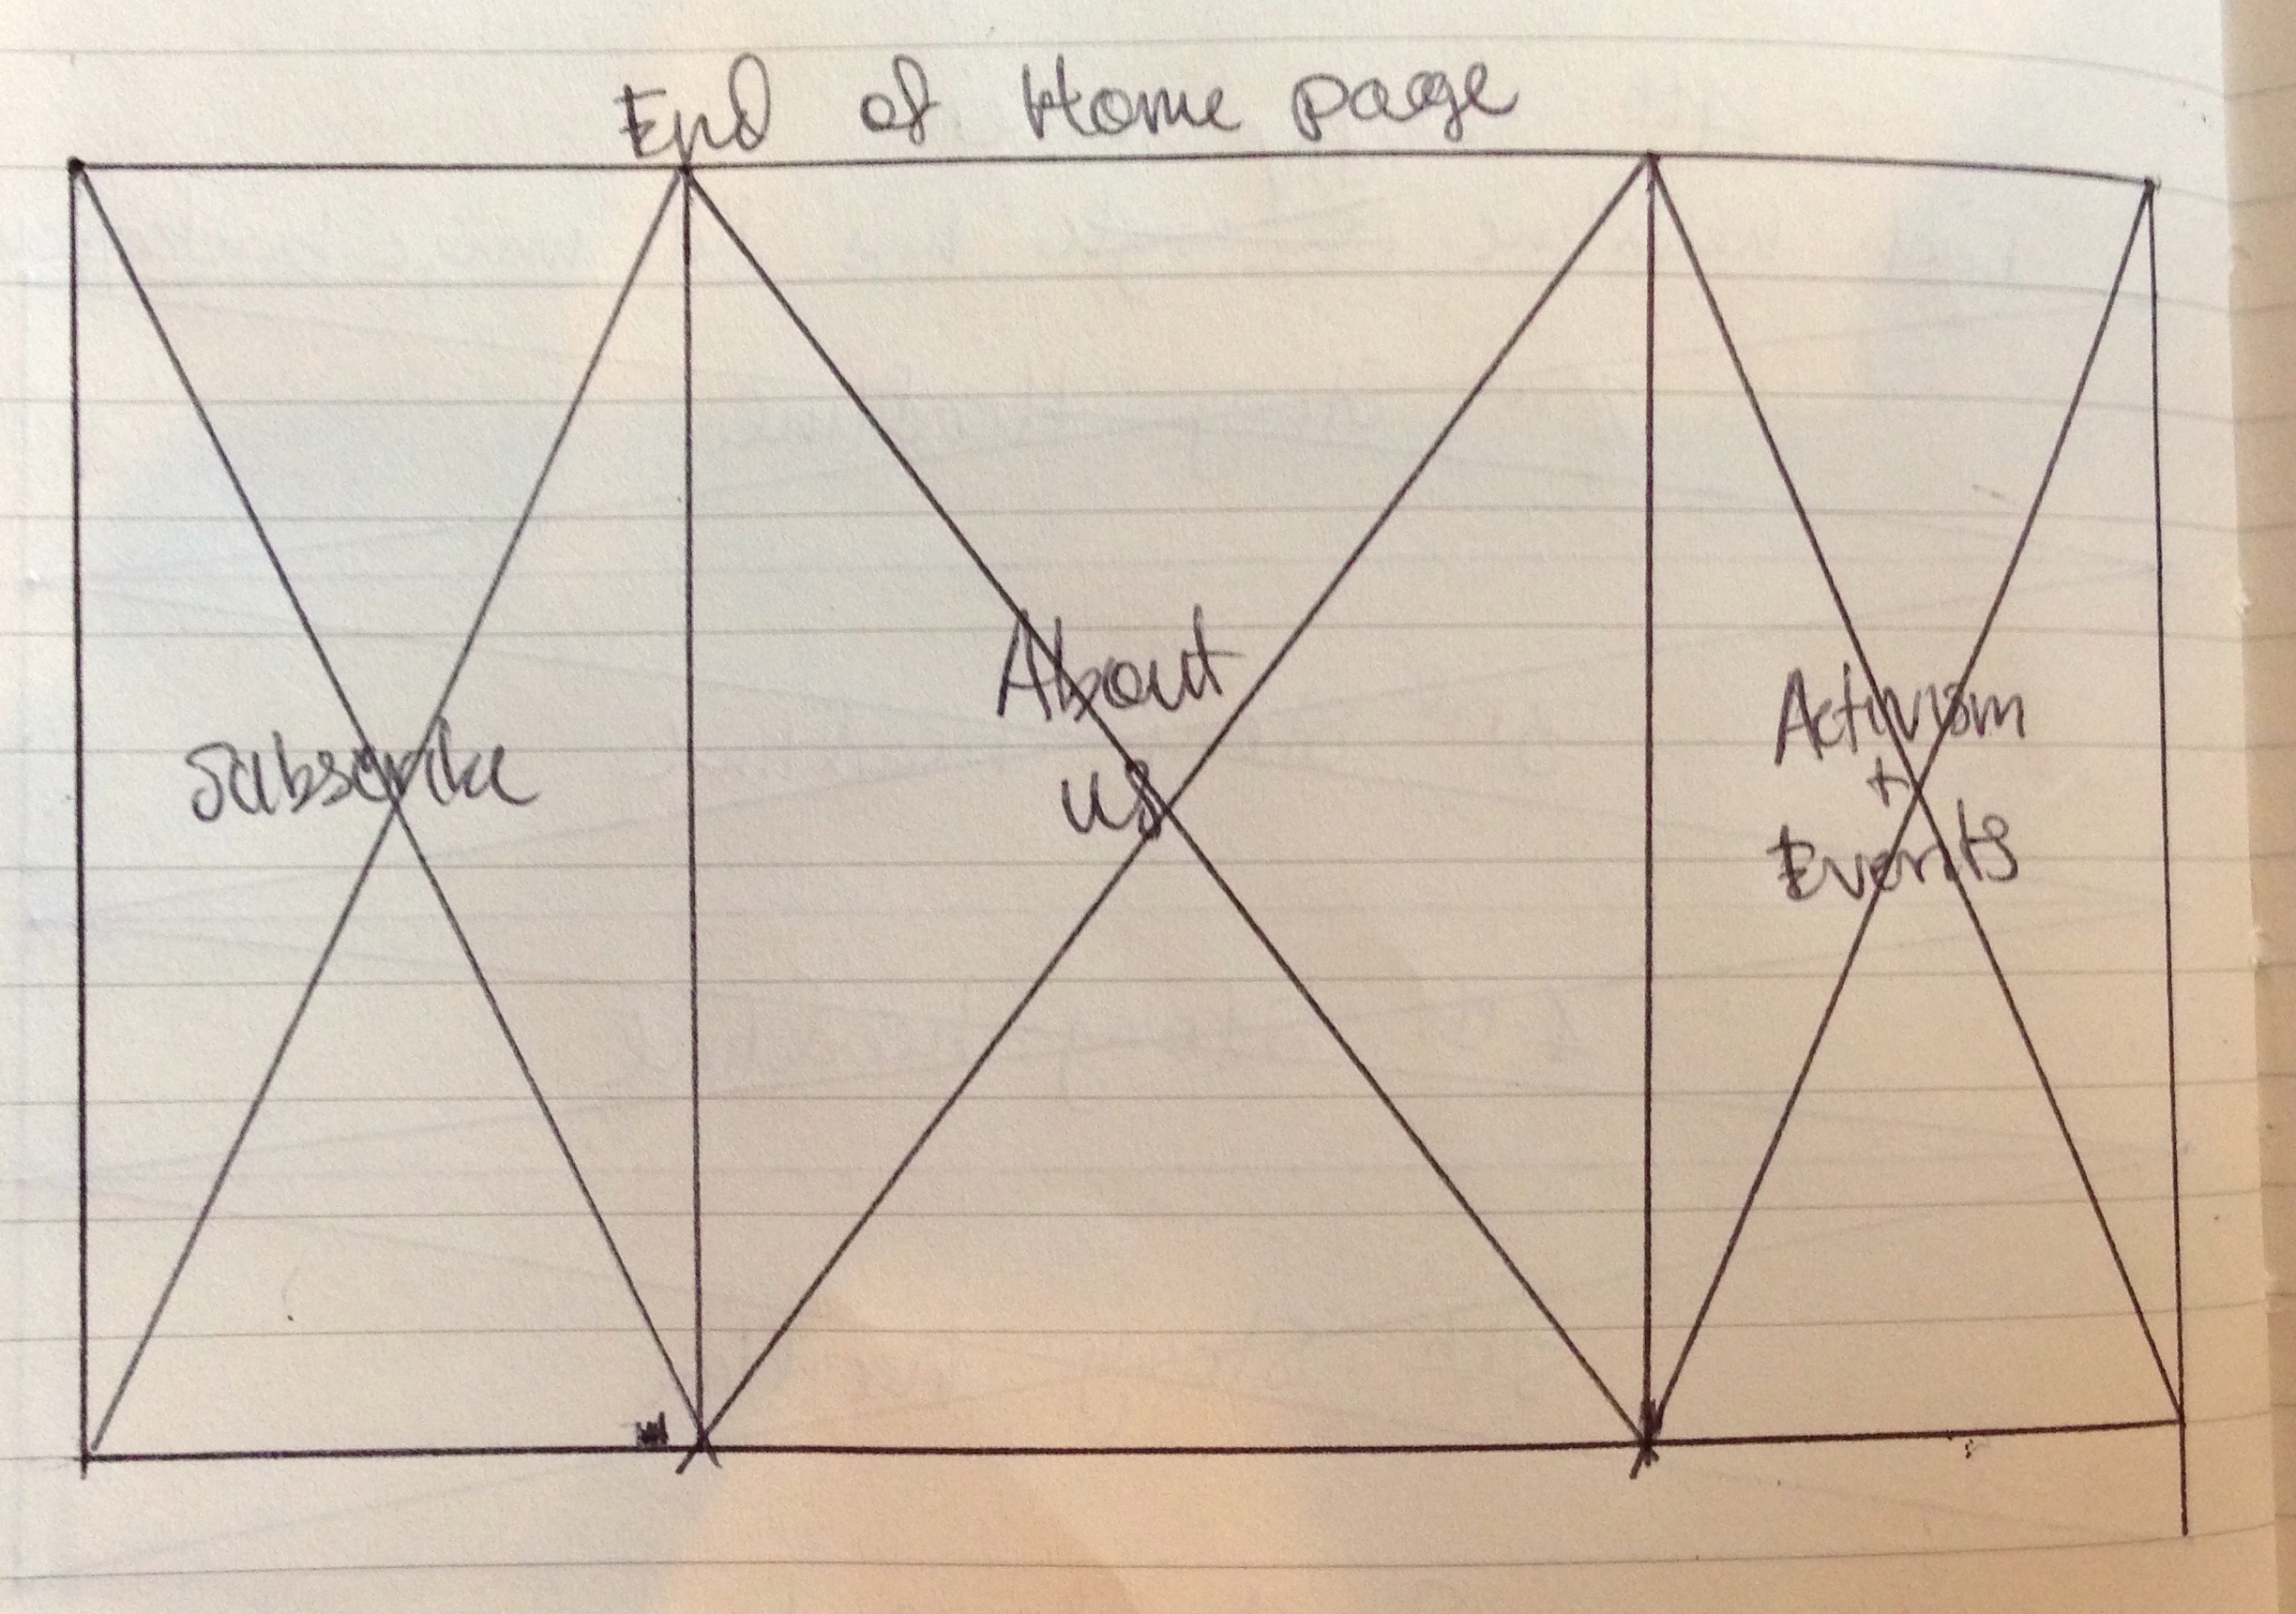 End of Home page
Subscribe
About
us
Activism
+
Events